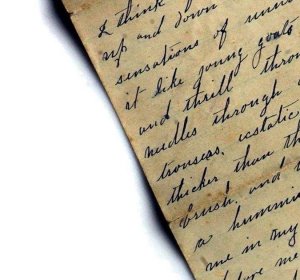 I think
up and down
sensations of
it like young goats
and thrill
needles through
trousers. ecstatic
thicker than
brush, and
a hummin
me in my
me